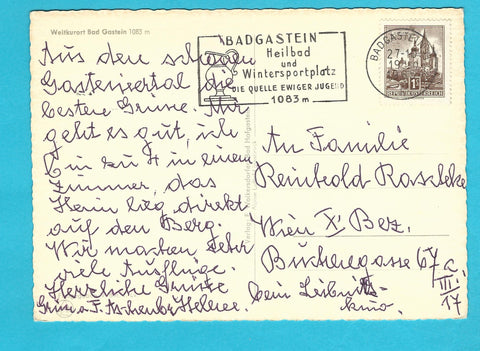 Weltkurort Bad Gastein 1083 m
Aus dem schönen
Gasteinertal die
besten Grüsse. Mir
geht es gut, ich
bin zu 4 in einem
Zimmer, das
Heim liegt direkt
auf dem Berg.
Wir machen sehr
viele Ausflüge.
Herzliche Grüsse
Helene.
BADGASTEIN
Heilbad
und
Wintersportplatz
DIE QUELLE EWIGER JUGEND
1083 m
BADGAST
27.
REPUBLIK ÖSTERREICH
An Familie
Reinhold Raschke
Wien X. Bez.
Buchengasse 67a
III.
17
beim Leibnitz-
kino.